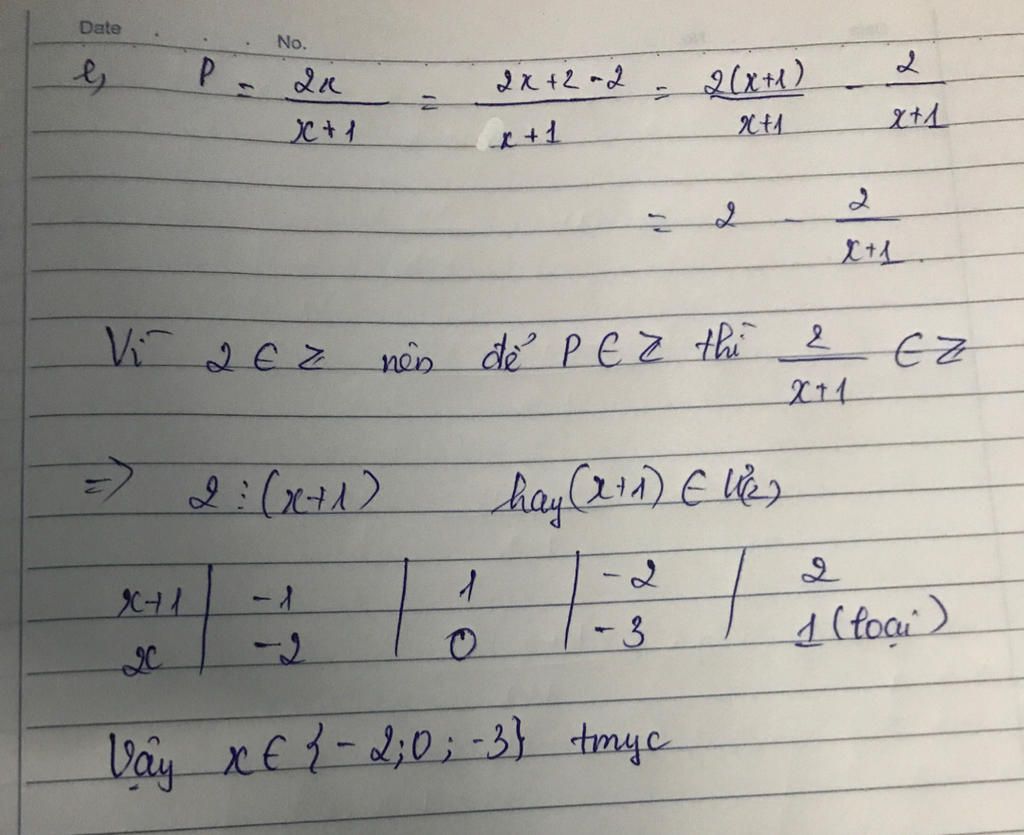 Date . . . No.
e, P = 2x/(x+1) = (2x+2-2)/(x+1) = 2(x+1)/(x+1) - 2/(x+1)
= 2 - 2/(x+1).
Vì 2 ∈ Z nên để P ∈ Z thì 2/(x+1) ∈ Z
=> 2 ⋮ (x+1) hay (x+1) ∈ Ư(2)
x+1 | -1 | 1 | -2 | 2
x | -2 | 0 | -3 | 1 (loại)
Vậy x ∈ {-2; 0; -3} tmyc